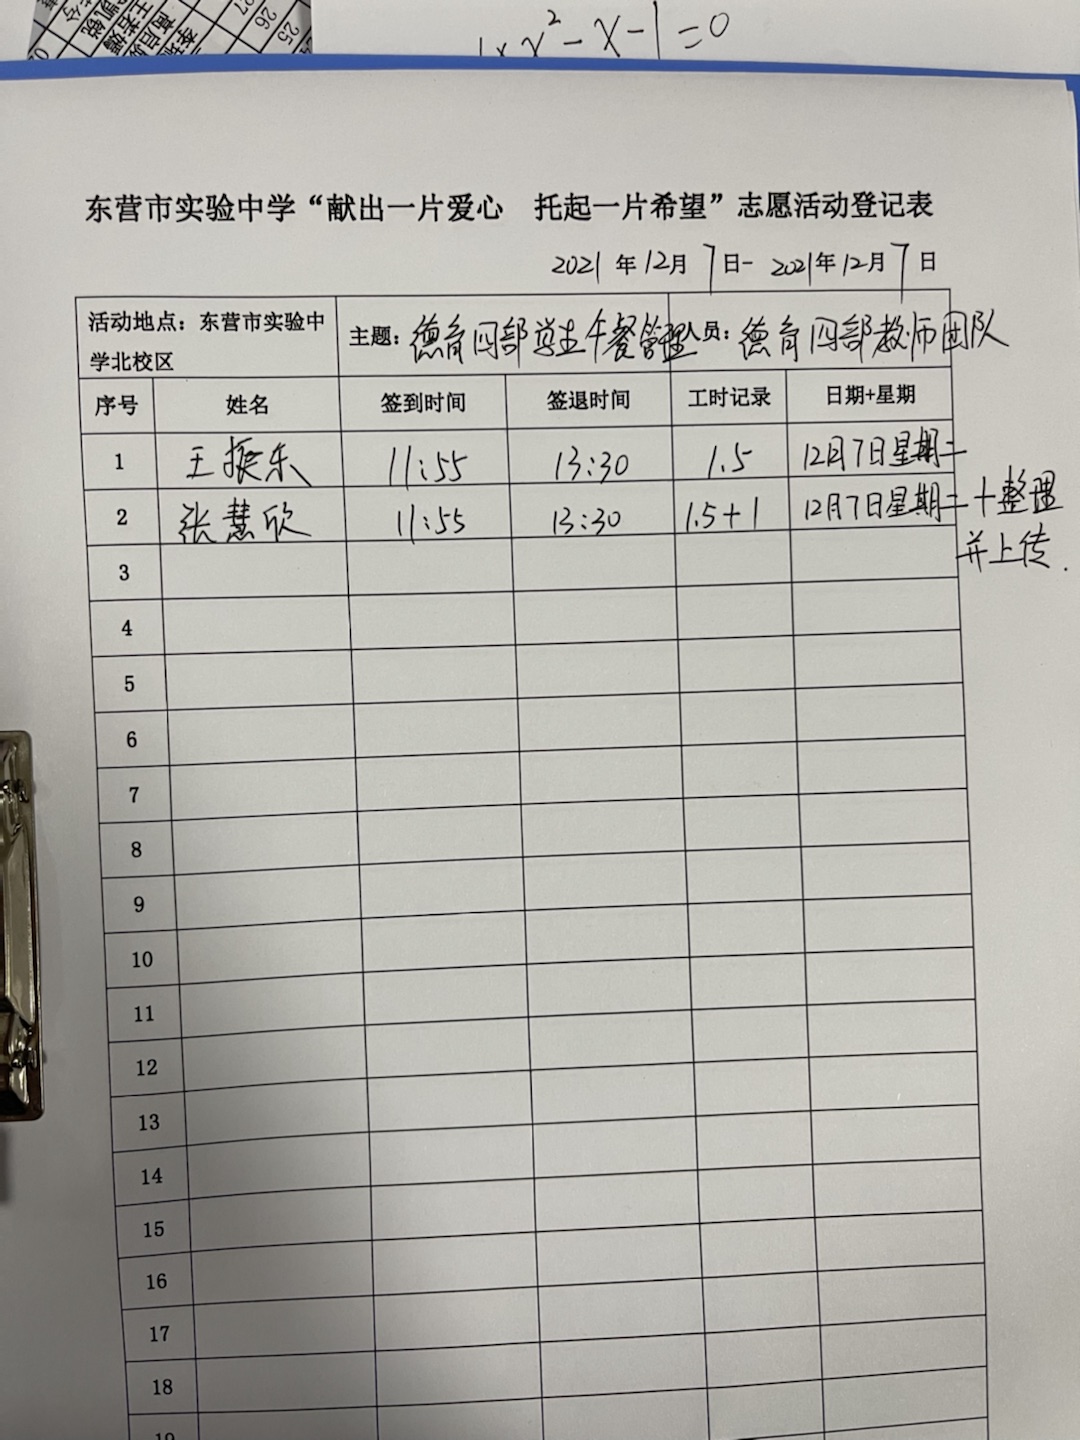 25
26
27
x² - x - 1 = 0
东营市实验中学“献出一片爱心 托起一片希望”志愿活动登记表
2021年12月7日-2021年12月7日
活动地点：东营市实验中学北校区 主题：德育四部学生午餐管理 人员：德育四部教师团队
序号 姓名 签到时间 签退时间 工时记录 日期+星期
1 王振乐 11:55 13:30 1.5 12月7日星期二
2 张慧欣 11:55 13:30 1.5+1 12月7日星期二+整理
并上传.
3
4
5
6
7
8
9
10
11
12
13
14
15
16
17
18
19